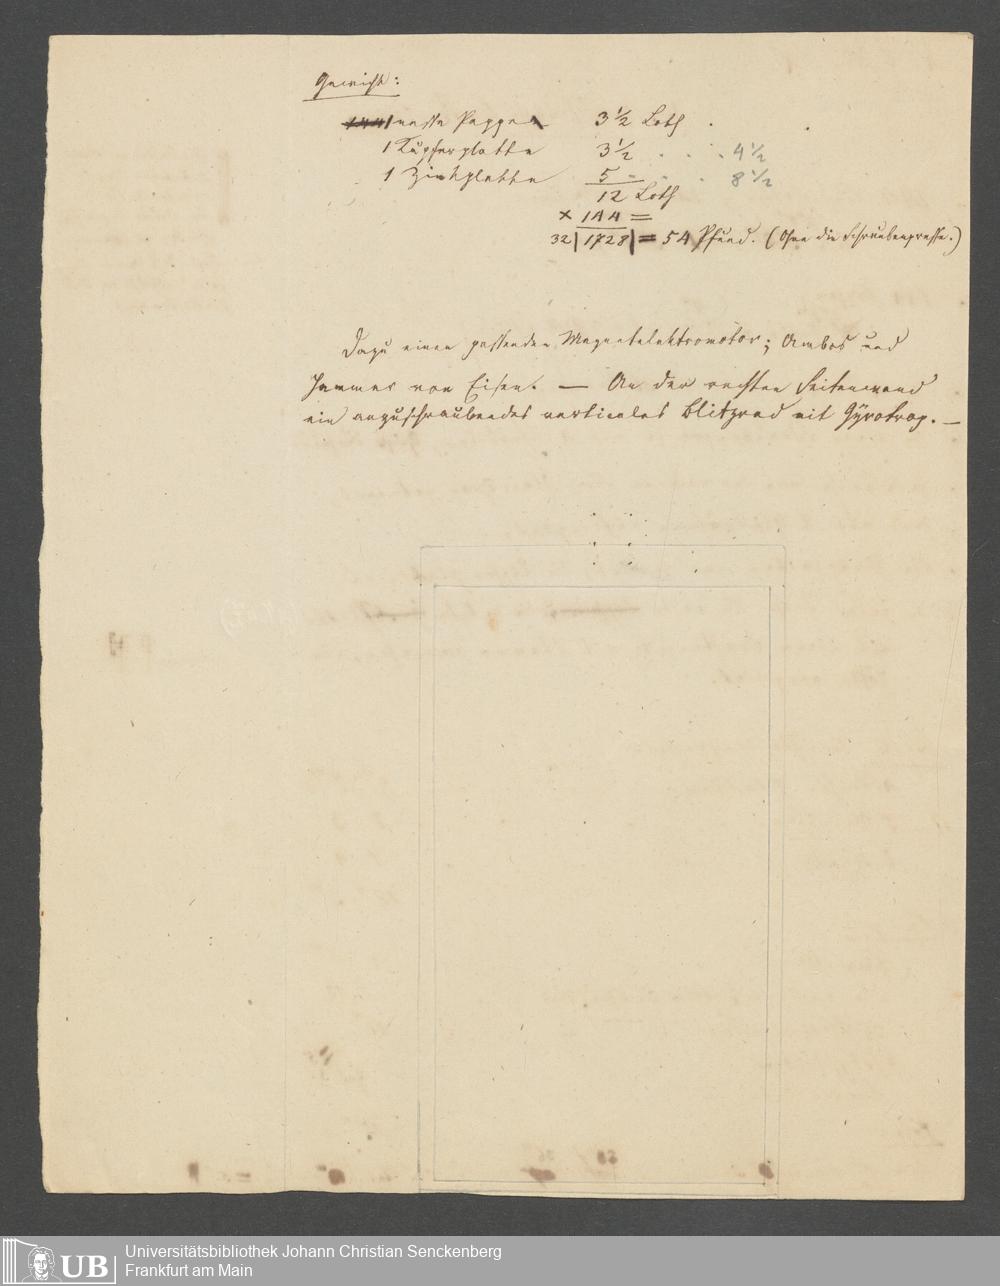 Gewicht:
1 nasse Pappe 3 1/2 Loth .
1 Kupferplatte 3 1/2 . . . 4 1/2
1 Zinkplatte 5 - . . 8 1/2
12 Loth
x 144 =
32 | 1728 | = 54 Pfund. (Ohne die Schraubenpresse.)
Dazu einen passenden Magnetelektromotor; Ambos und
Hammer von Eisen. — An der rechten Seitenwand
ein anzuschraubendes verticales Blitzrad mit Gÿrotrop. —
UB Universitätsbibliothek Johann Christian Senckenberg
Frankfurt am Main